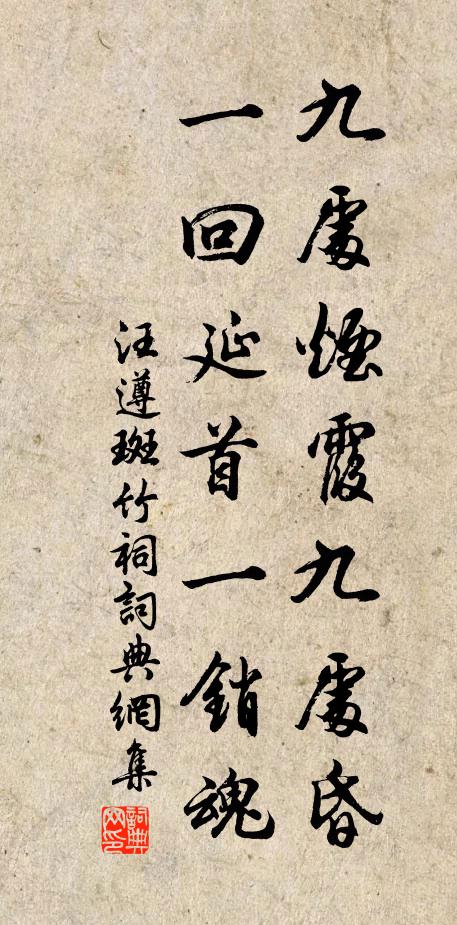 九處煙霞九處昏
一回延首一銷魂
汪遵斑竹祠詞典網集
詞典網印